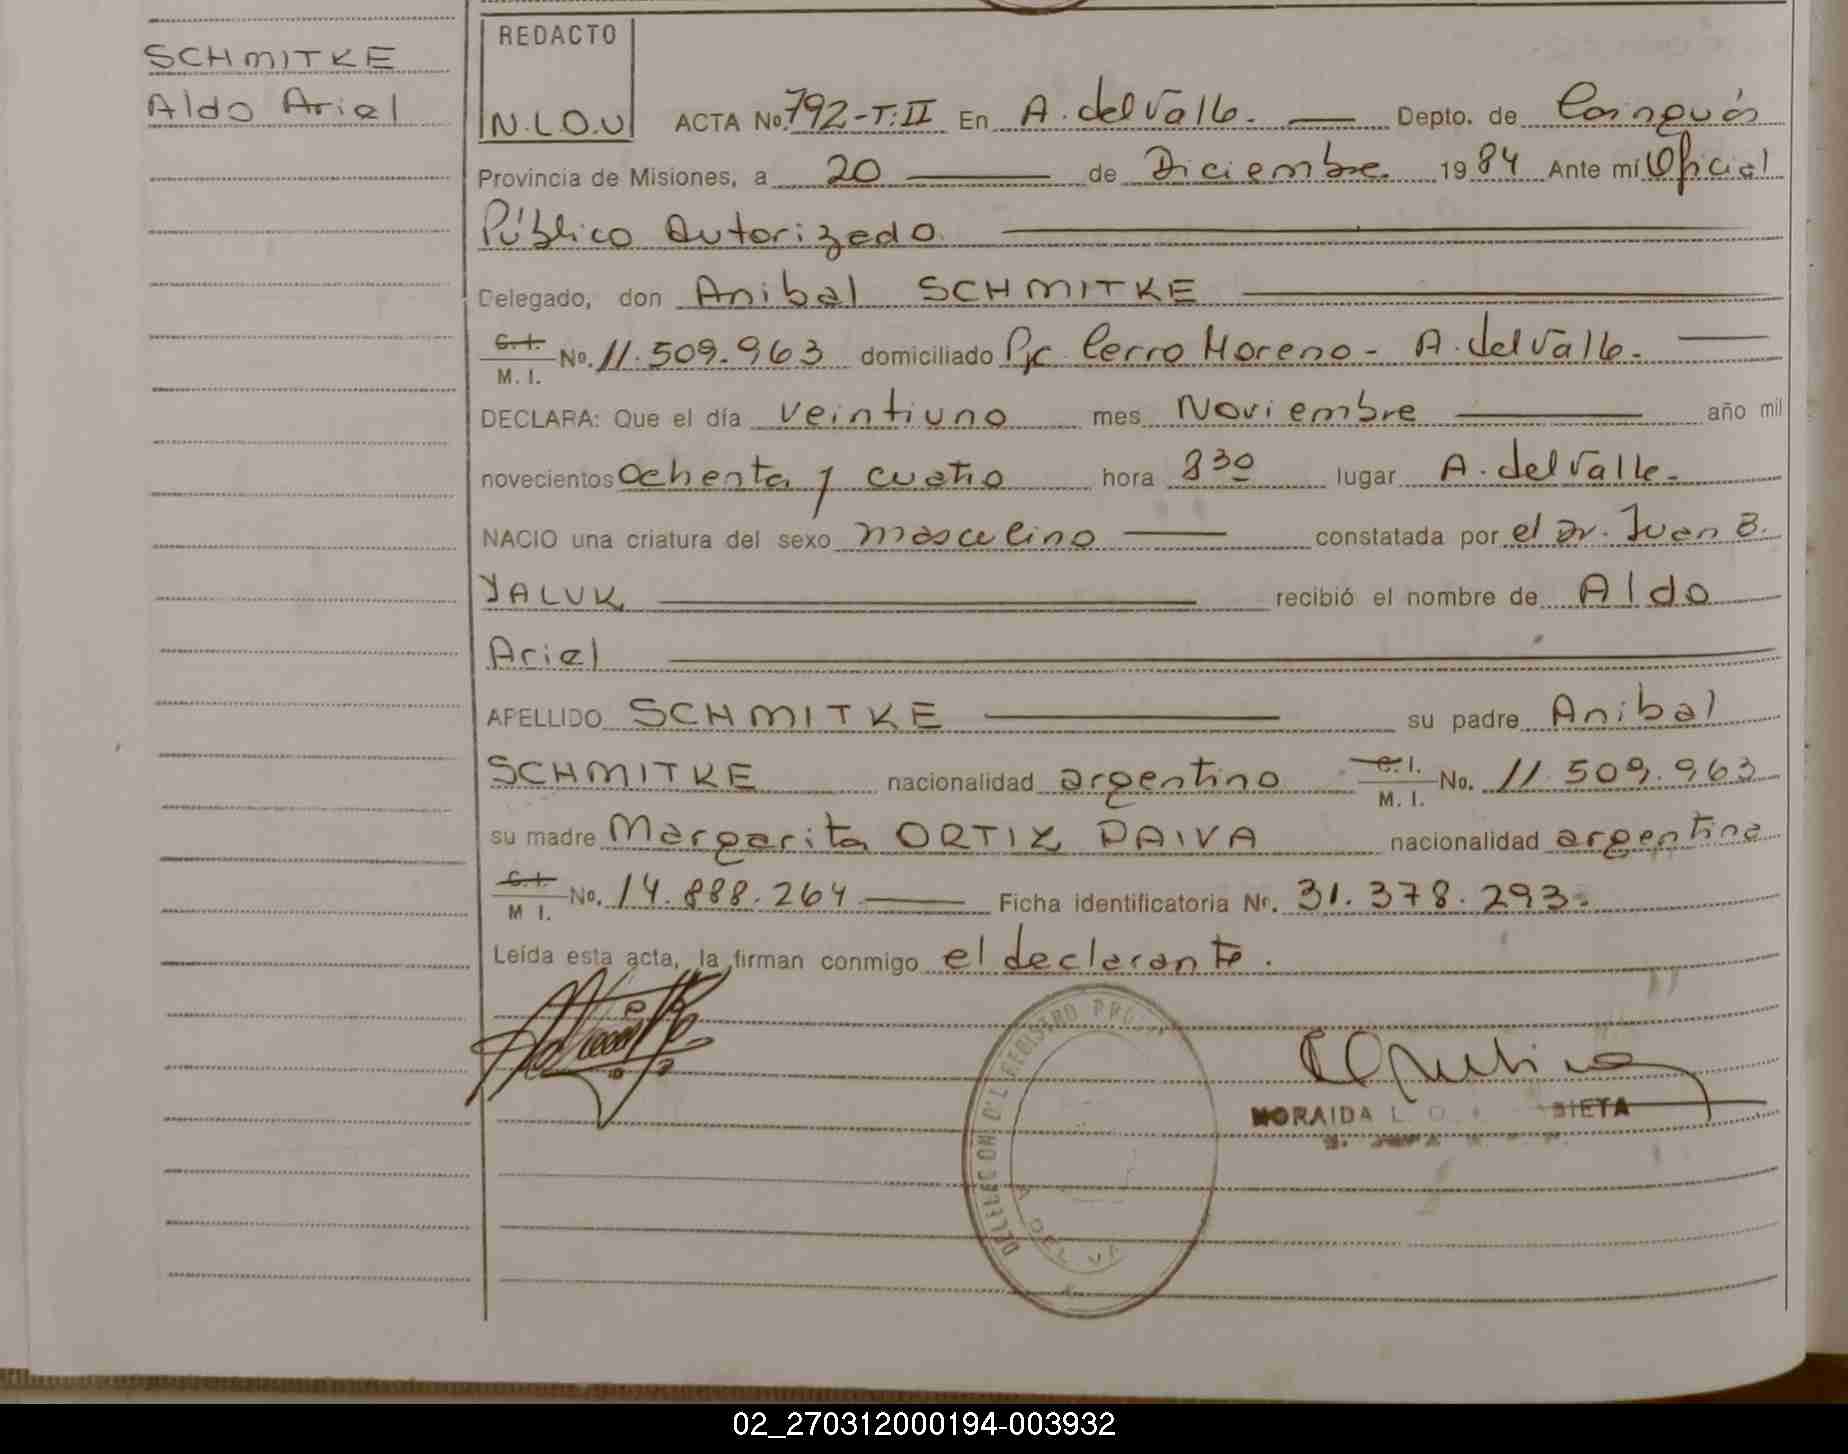 SCHMITKE
Aldo Ariel
REDACTO
N.L.O.U
ACTA No. 792-T:II En A. del Valle. Depto. de Cainguás
Provincia de Misiones, a 20 de Diciembre. 1984 Ante mí Oficial
Público Autorizado.
Delegado, don Anibal SCHMITKE
C.I. M.I. No. 11.509.963 domiciliado Pje Cerro Moreno - A. del Valle.
DECLARA: Que el día veintiuno mes Noviembre año mil
novecientos ochenta y cuatro hora 8 30 lugar A. del Valle.
NACIO una criatura del sexo masculino constatada por el Dr. Juan B.
YALUK recibió el nombre de Aldo
Ariel
APELLIDO SCHMITKE su padre Anibal
SCHMITKE nacionalidad argentino C.I. M.I. No. 11.509.963
su madre Margarita ORTIZ PAIVA nacionalidad argentina
C.I. M I. No. 14.888.264 Ficha identificatoria Nr. 31.378.293.
Leída esta acta, la firman conmigo el declarante.
REGISTRO
A DEL VA
NORAIDA L O
02_270312000194-003932